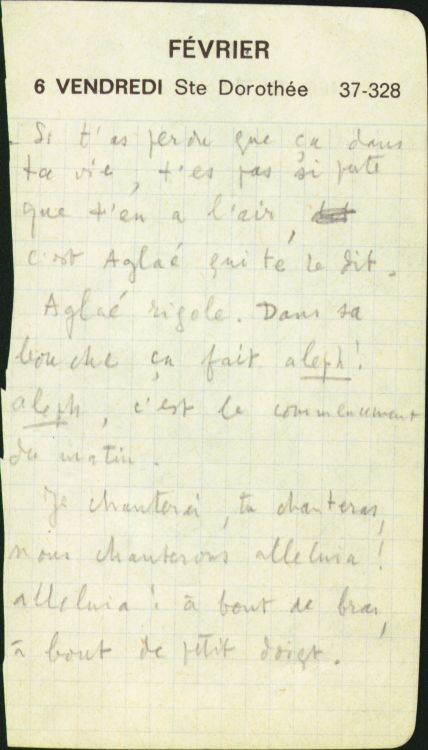 FÉVRIER
6 VENDREDI Ste Dorothée 37-328
. Si t'as perdu que ça dans
ta vie, t'es pas si pute
que t'en a l'air,
c'est Aglaé qui te le dit.
Aglaé rigole. Dans sa
bouche ça fait aleph !
aleph, c'est le commencement
du matin.
Je chanterai, tu chanteras,
nous chanterons alleluia !
alleluia ! à bout de bras,
à bout de petit doigt.